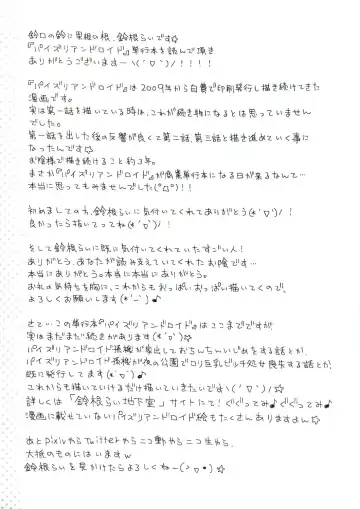 鈴口の鈴に男根の根、鈴根らいです☆
『パイズリアンドロイド』単行本を読んで頂き
ありがとうございますーヽ(´▽`)ノ!!!!
『パイズリアンドロイド』は2009年から自費で印刷発行し描き続けてきた
漫画です。
実は第一話を描いている時は、これが続き物になるとは思っていません
でした。
第一話を出した後の反響が良くて第二話、第三話と描き進めていく事に
なったんです☆
お陰様で描き続けること約3年。
まさか『パイズリアンドロイド』が商業単行本になる日が来るなんて…
本当に思ってもみませんでした(°△°)!!
初めましての方、鈴根らいに気付いてくれてありがとう(*´▽`)ノ!
良かったら描いてってね(*´▽`)ノ!
そして鈴根らいに既に気付いてくれていたすごい人!
ありがとう、あなたが読み支えていてくれたお陰です…
本当にありがとう。本当に本当にありがとう。
お礼の気持ちを胸に、これからもおっぱいおっぱい描いてくので、
よろしくお願いします(*´ｰ`)♪
さて…この単行本『パイズリアンドロイド』はここまでですが、
実はまだまだ続きがあります(*´▽`)☆
既に発行してます(*´▽`)♪
これからも描いていけるだけ描いていきたいですヽ(´▽`)ノ☆
詳しくは「鈴根らい地下室」サイトにて!ぐぐってみ♪ぐぐってみ♪
漫画に載せていないパイズリアンドロイド絵もたくさんありますよん☆
あとpixivやらtwitterやらニコ動やらニコ生やら、
大抵のものにはいますw
鈴根らいを見かけたらよろしくねー(>▽•)☆